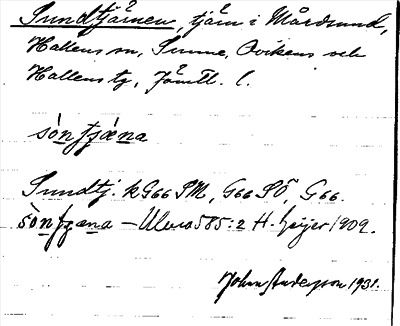 Sundtjärnen, tjärn i Mårdsund,
Hallens sn, Sunne, Ovikens och
Hallens tg, Jämtl. l.
sònſjæna
Sundtj. kG66 SM, G66 SÖ, G66.
sònſjæna – Ulma 585:2 H. Geijer 1909.
John Andersson 1931.